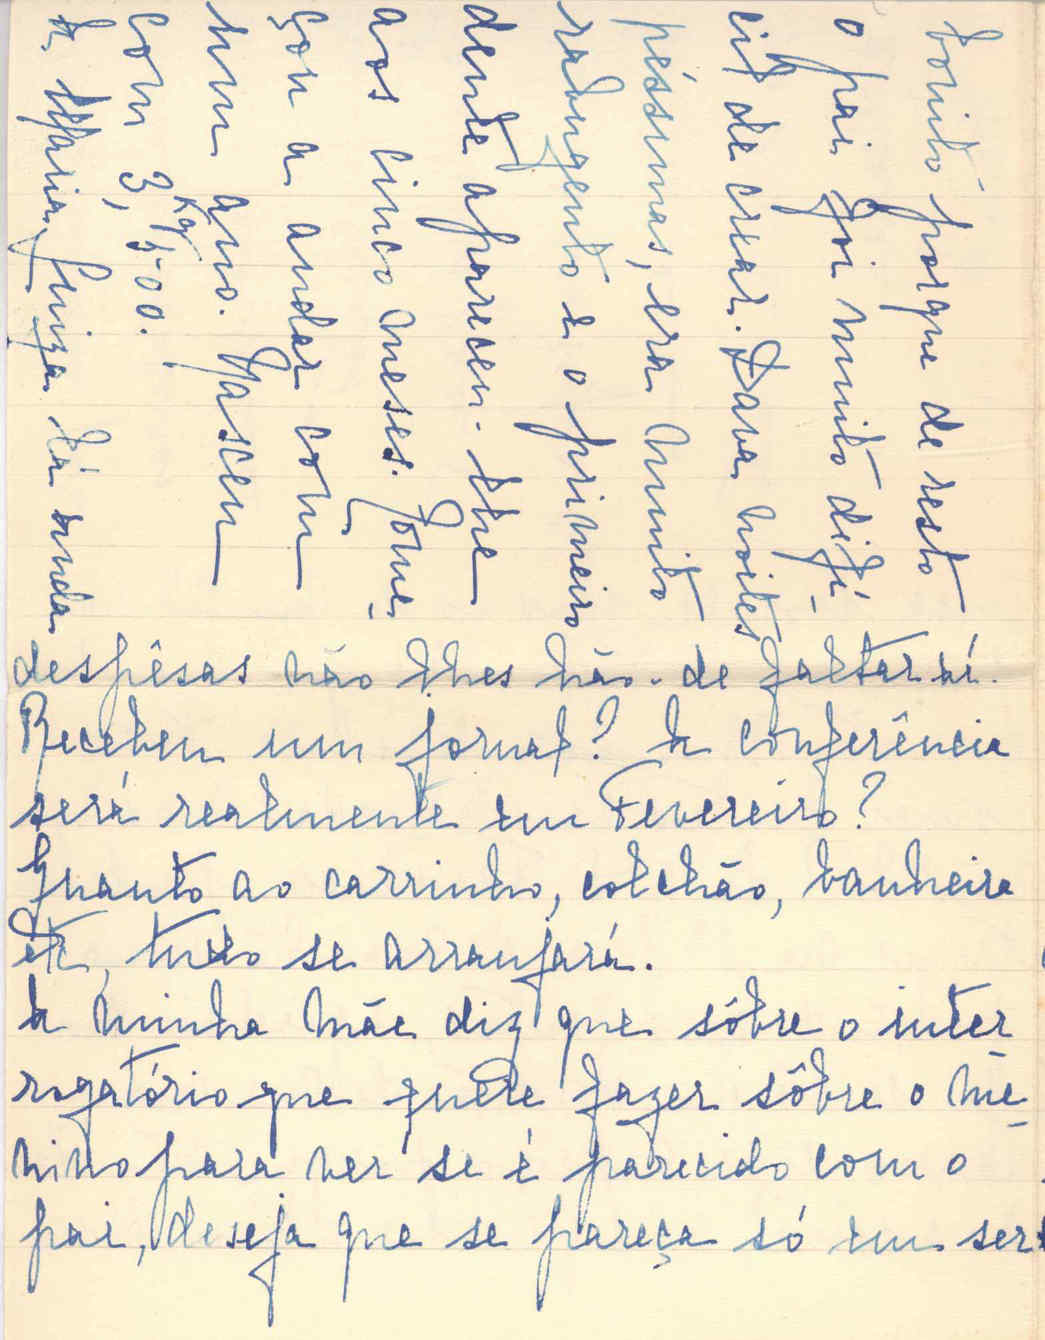 despêsas não lhes hão-de faltar aí.
Recebem um jornal? A conferência
será realmente em Fevereiro?
Quanto ao carrinho, colchão, banheira
etc, tudo se arranjará.
A minha mãe diz que sôbre o inter
rogatório que quere fazer sôbre o me-
nino para ver se é parecido com o
pai, deseja que se pareça só em ser
bonito porque de resto
o pai foi muito difí-
cil de crear. Dava noites
péssimas, era muito
rabugento e o primeiro
dente apareceu-lhe
aos cinco meses. Come-
çou a andar com
hum ano. Nasceu
com 3,Kg 500.
A Maria Luiza lá anda